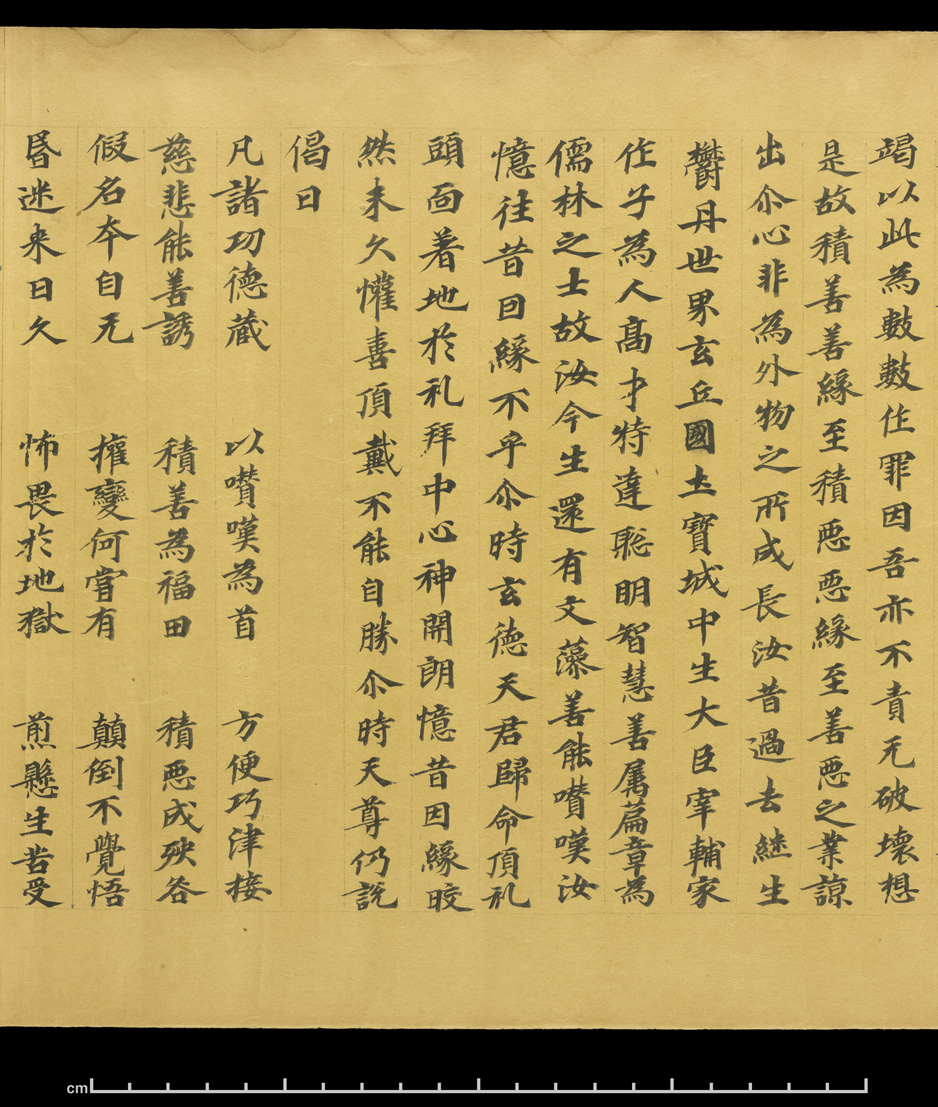 竭以此為數數住罪因吾亦不責无破壞想
是故積善善緣至積惡惡緣至善惡之業諒
出尒心非為外物之所成長汝昔過去継生
欝丹世界玄丘國土寳城中生大臣宰輔家
作子為人高才特達聡明智慧善属篇章為
儒林之士故汝今生還有文藻善能嘆汝
憶往昔因緣不乎尒時玄徳天君歸命頂礼
頭面著地於礼拜中心神開朗憶昔因緣晈
然未久懽喜頂戴不能自勝尒時天尊仍說
偈曰
凡諸功德藏 以讚嘆為首 方便巧津接
慈悲能善誘 積善為福田 積惡成殃咎
假名本自无 擁變何嘗有 顛倒不覺悟
昬迷来日久 怖畏於地獄 煎懸生苦受
cm